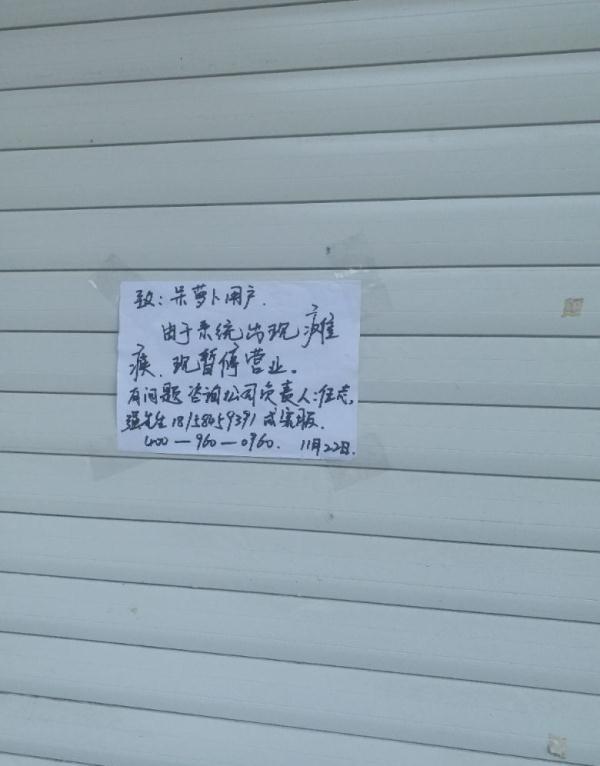 致：呆萝卜用户.
由于系统出现瘫
痪.现暂停营业。
有问题咨询公司负责人:任志,
强先生 18158059391 或客服.
400—960—0960. 11月22日.